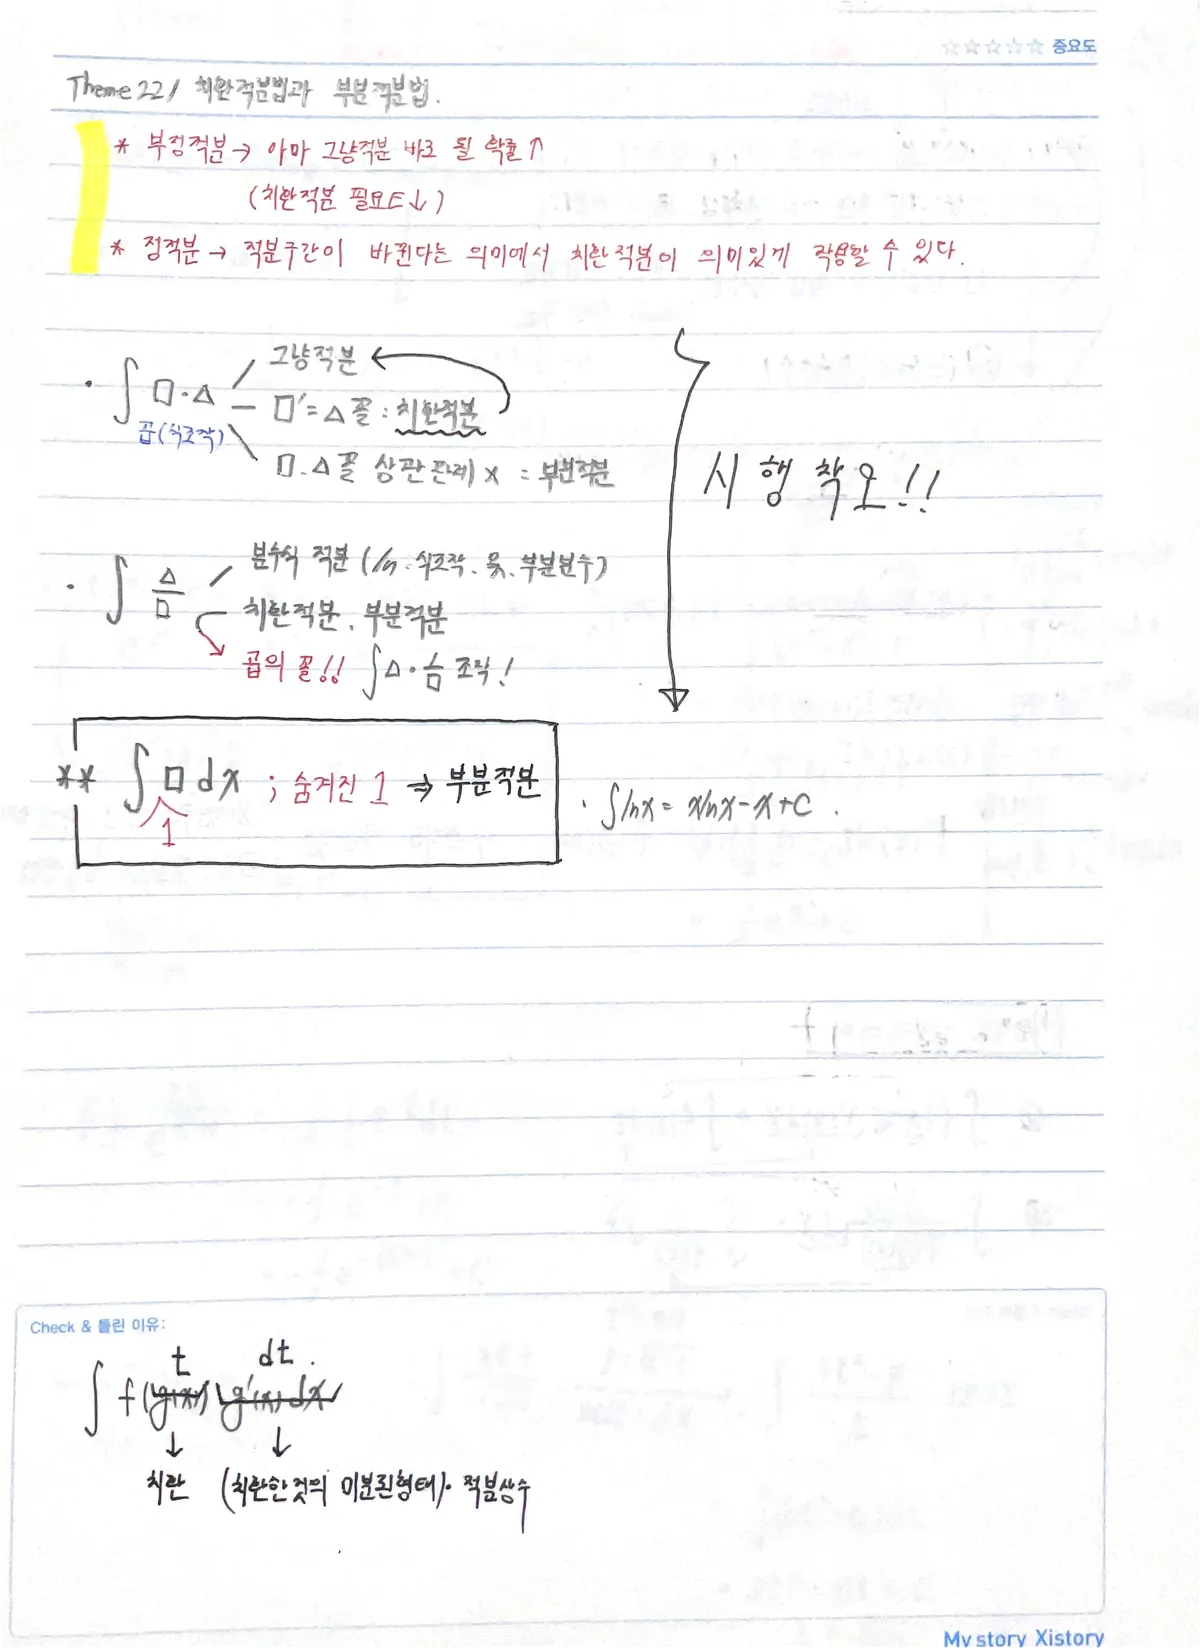 ☆☆☆☆☆ 중요도
Theme 22 / 치환적분법과 부분적분법.
* 부정적분 → 아마 그냥적분 바로 될 확률 ↑
(치환적분 필요도 ↓)
* 정적분 → 적분구간이 바뀐다는 의미에서 치환적분이 의미있게 작용할 수 있다.
· ∫ □·△
곱(식조작)
그냥적분
□' = △ 꼴 : 치환적분
□·△ 꼴 상관관계 x = 부분적분
시행착오!!
· ∫ △/□
분수식 적분 (ln · 식조작. 몫. 부분분수)
치환적분. 부분적분
곱의 꼴!! ∫△·1/□ 조작!
** ∫ □ dx ; 숨겨진 1 ⇒ 부분적분
1
· ∫lnx = xlnx-x+C .
Check & 틀린 이유:
t dt .
∫ f(g(x)) g'(x) dx
↓ ↓
치환 (치환한것의 미분된형태)· 적분상수
My story Xistory